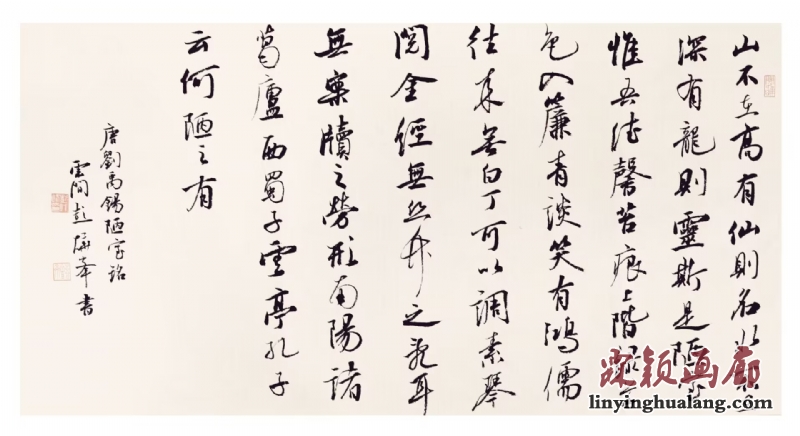 山不在高有仙則名水不在
深有龍則靈斯是陋室
惟吾德馨苔痕上階綠草
色入簾青談笑有鴻儒
往來無白丁可以調素琴
閱金經無絲竹之亂耳
無案牘之勞形南陽諸
葛廬西蜀子雲亭孔子
云何陋之有
唐劉禹錫陋室銘
雲間彭峯書
颖画廊
linyinghualang.com